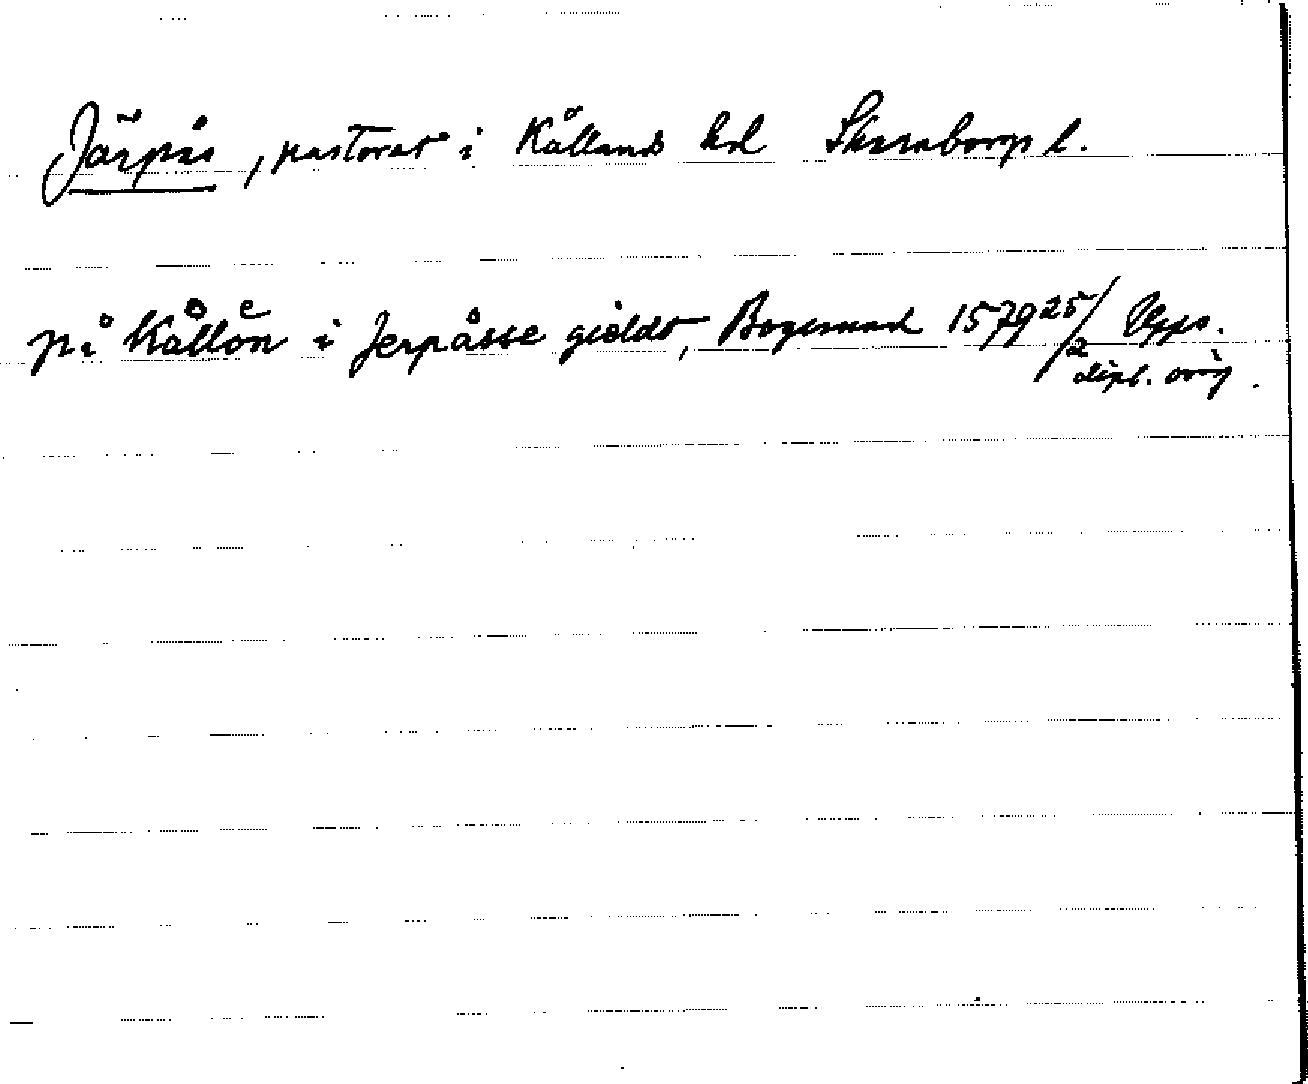 Järpås, pastorat i Kållands hd Skaraborgs l.
på Kållōn i Jerpåsse gieldt, Bogesund 1579 25/2 Upps.
dipl. orig.